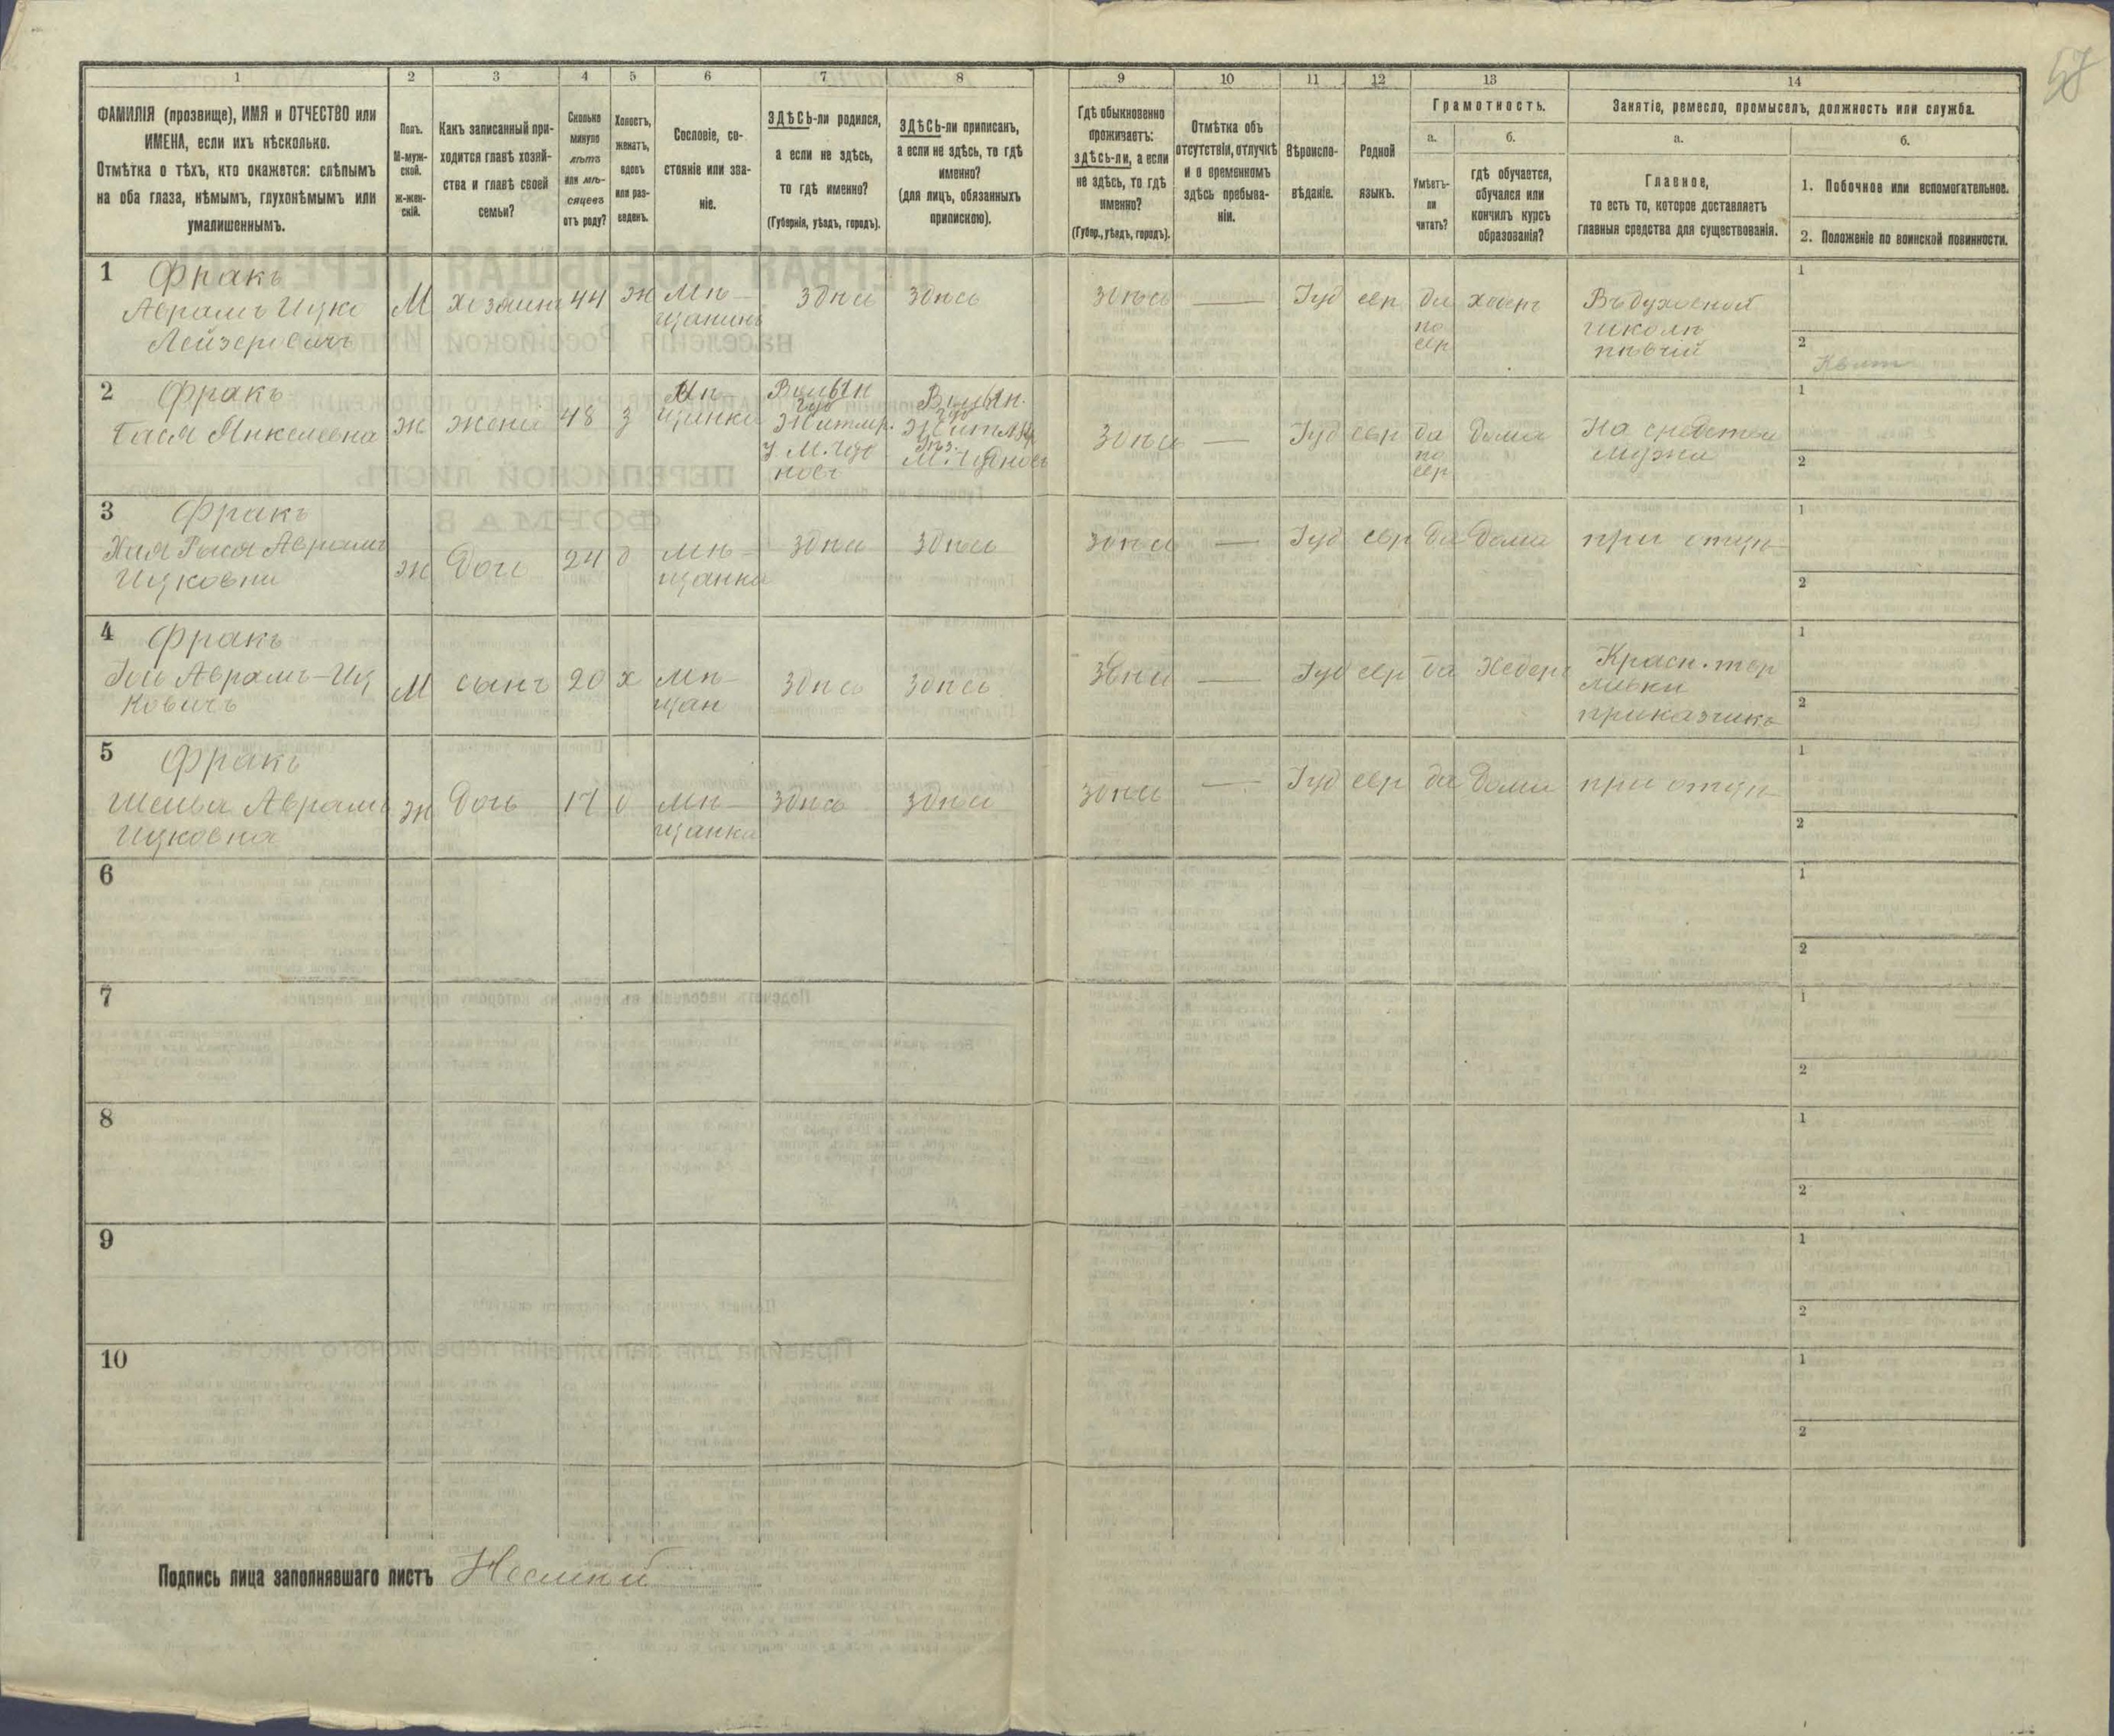 58
1 2 3 4 5 6 7 8 9 10 11 12 13 14
ФАМИЛІЯ (прозвище), ИМЯ и ОТЧЕСТВО или
ИМЕНА, если ихъ нѣсколько.
Отмѣтка о тѣхъ, кто окажется: слѣпымъ
на оба глаза, нѣмымъ, глухонѣмымъ или
умалишеннымъ.
Полъ.
М-муж-
ской.
Ж-жен-
скій.
Какъ записанный при-
ходится главѣ хозяй-
ства и главѣ своей
семьи?
Сколько
минуло
лѣтъ
или мѣ-
сяцевъ
отъ роду?
Холостъ,
женатъ,
вдовъ
или раз-
веденъ.
Сословіе, со-
стояніе или зва-
ніе.
ЗДѢСЬ-ли родился,
а если не здѣсь,
то гдѣ именно?
(Губернія, уѣздъ, городъ).
ЗДѢСЬ-ли приписанъ,
а если не здѣсь, то гдѣ
именно?
(для лицъ, обязанныхъ
припискою).
Гдѣ обыкновенно
проживаетъ:
ЗДѢСЬ-ли, а если
не здѣсь, то гдѣ
именно?
(Губер., уѣздъ, городъ).
Отмѣтка объ
отсутствіи, отлучкѣ
и о временномъ
здѣсь пребыва-
ніи.
Вѣроиспо-
вѣданіе.
Родной
языкъ.
Грамотность.
а.
Умѣетъ-
ли
читать?
б.
гдѣ обучается,
обучался или
кончилъ курсъ
образованія?
Занятіе, ремесло, промыселъ, должность или служба.
а.
Главное,
то есть то, которое доставляетъ
главныя средства для существованія.
б.
1. Побочное или вспомогательное.
2. Положеніе по воинской повинности.
1 Фракъ
Аврамъ Ицко
Лейзеровичъ
М
хозяинъ
44
ж
Мѣ-
щанинъ
здѣсь
здѣсь
здѣсь
—
Іуд
евр
да
по
евр
Въ духовной
школѣ
пѣвчій
1
2
2 Фракъ
Янкелевна
ж
жена
48
з
Мѣ
щанка
Волын
губ
Житмр.
у. М. Чуд
новъ
Волын.
губ
Житмр
М. Чудновъ
здѣсь
—
Іуд
евр
да
по
евр
дома
На средства
мужа
1
2
3 Фракъ
Хая Рася Аврамъ
Ицковна
ж
дочь
24
д
мѣ-
щанка
здѣсь
здѣсь
здѣсь
—
Іуд
евр
да
дома
при отцѣ
1
2
4 Фракъ
Аврамъ-Иц
ковичъ
М
сынъ
20
х
мѣ-
щан
здѣсь
здѣсь
здѣсь
—
Іуд
евр
да
Хедеръ
приказчикъ
1
2
5 Фракъ
Аврамъ
Ицковна
ж
дочь
17
д
мѣ-
щанка
здѣсь
здѣсь
здѣсь
—
Іуд
евр
да
дома
при отцѣ
1
2
6
1
2
7
1
2
8
1
2
9
1
2
10
1
2
Подпись лица заполнявшаго листъ